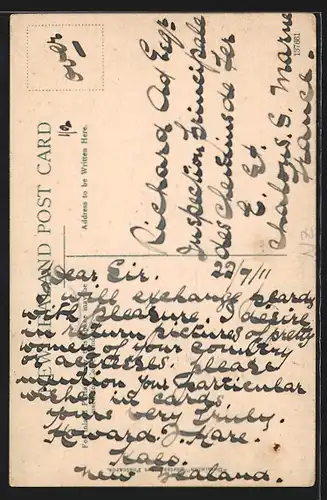 NEW ZEALAND POST CARD
Address to be Written Here.
137661
Richard Ad Eege
Inspection Principale
des Chemins de Fer
E. Et
Chalons. S. Marne
France.
NZ
22/9/11
Dear Sir.
I will exchange p. cards
with pleasure. I desire
in return pictures of pretty
women of your country
or actresses. please
mention your particular
wishes in cards
yours very truly.
Howard J. Hare.
Kaeo.
New Zealand.